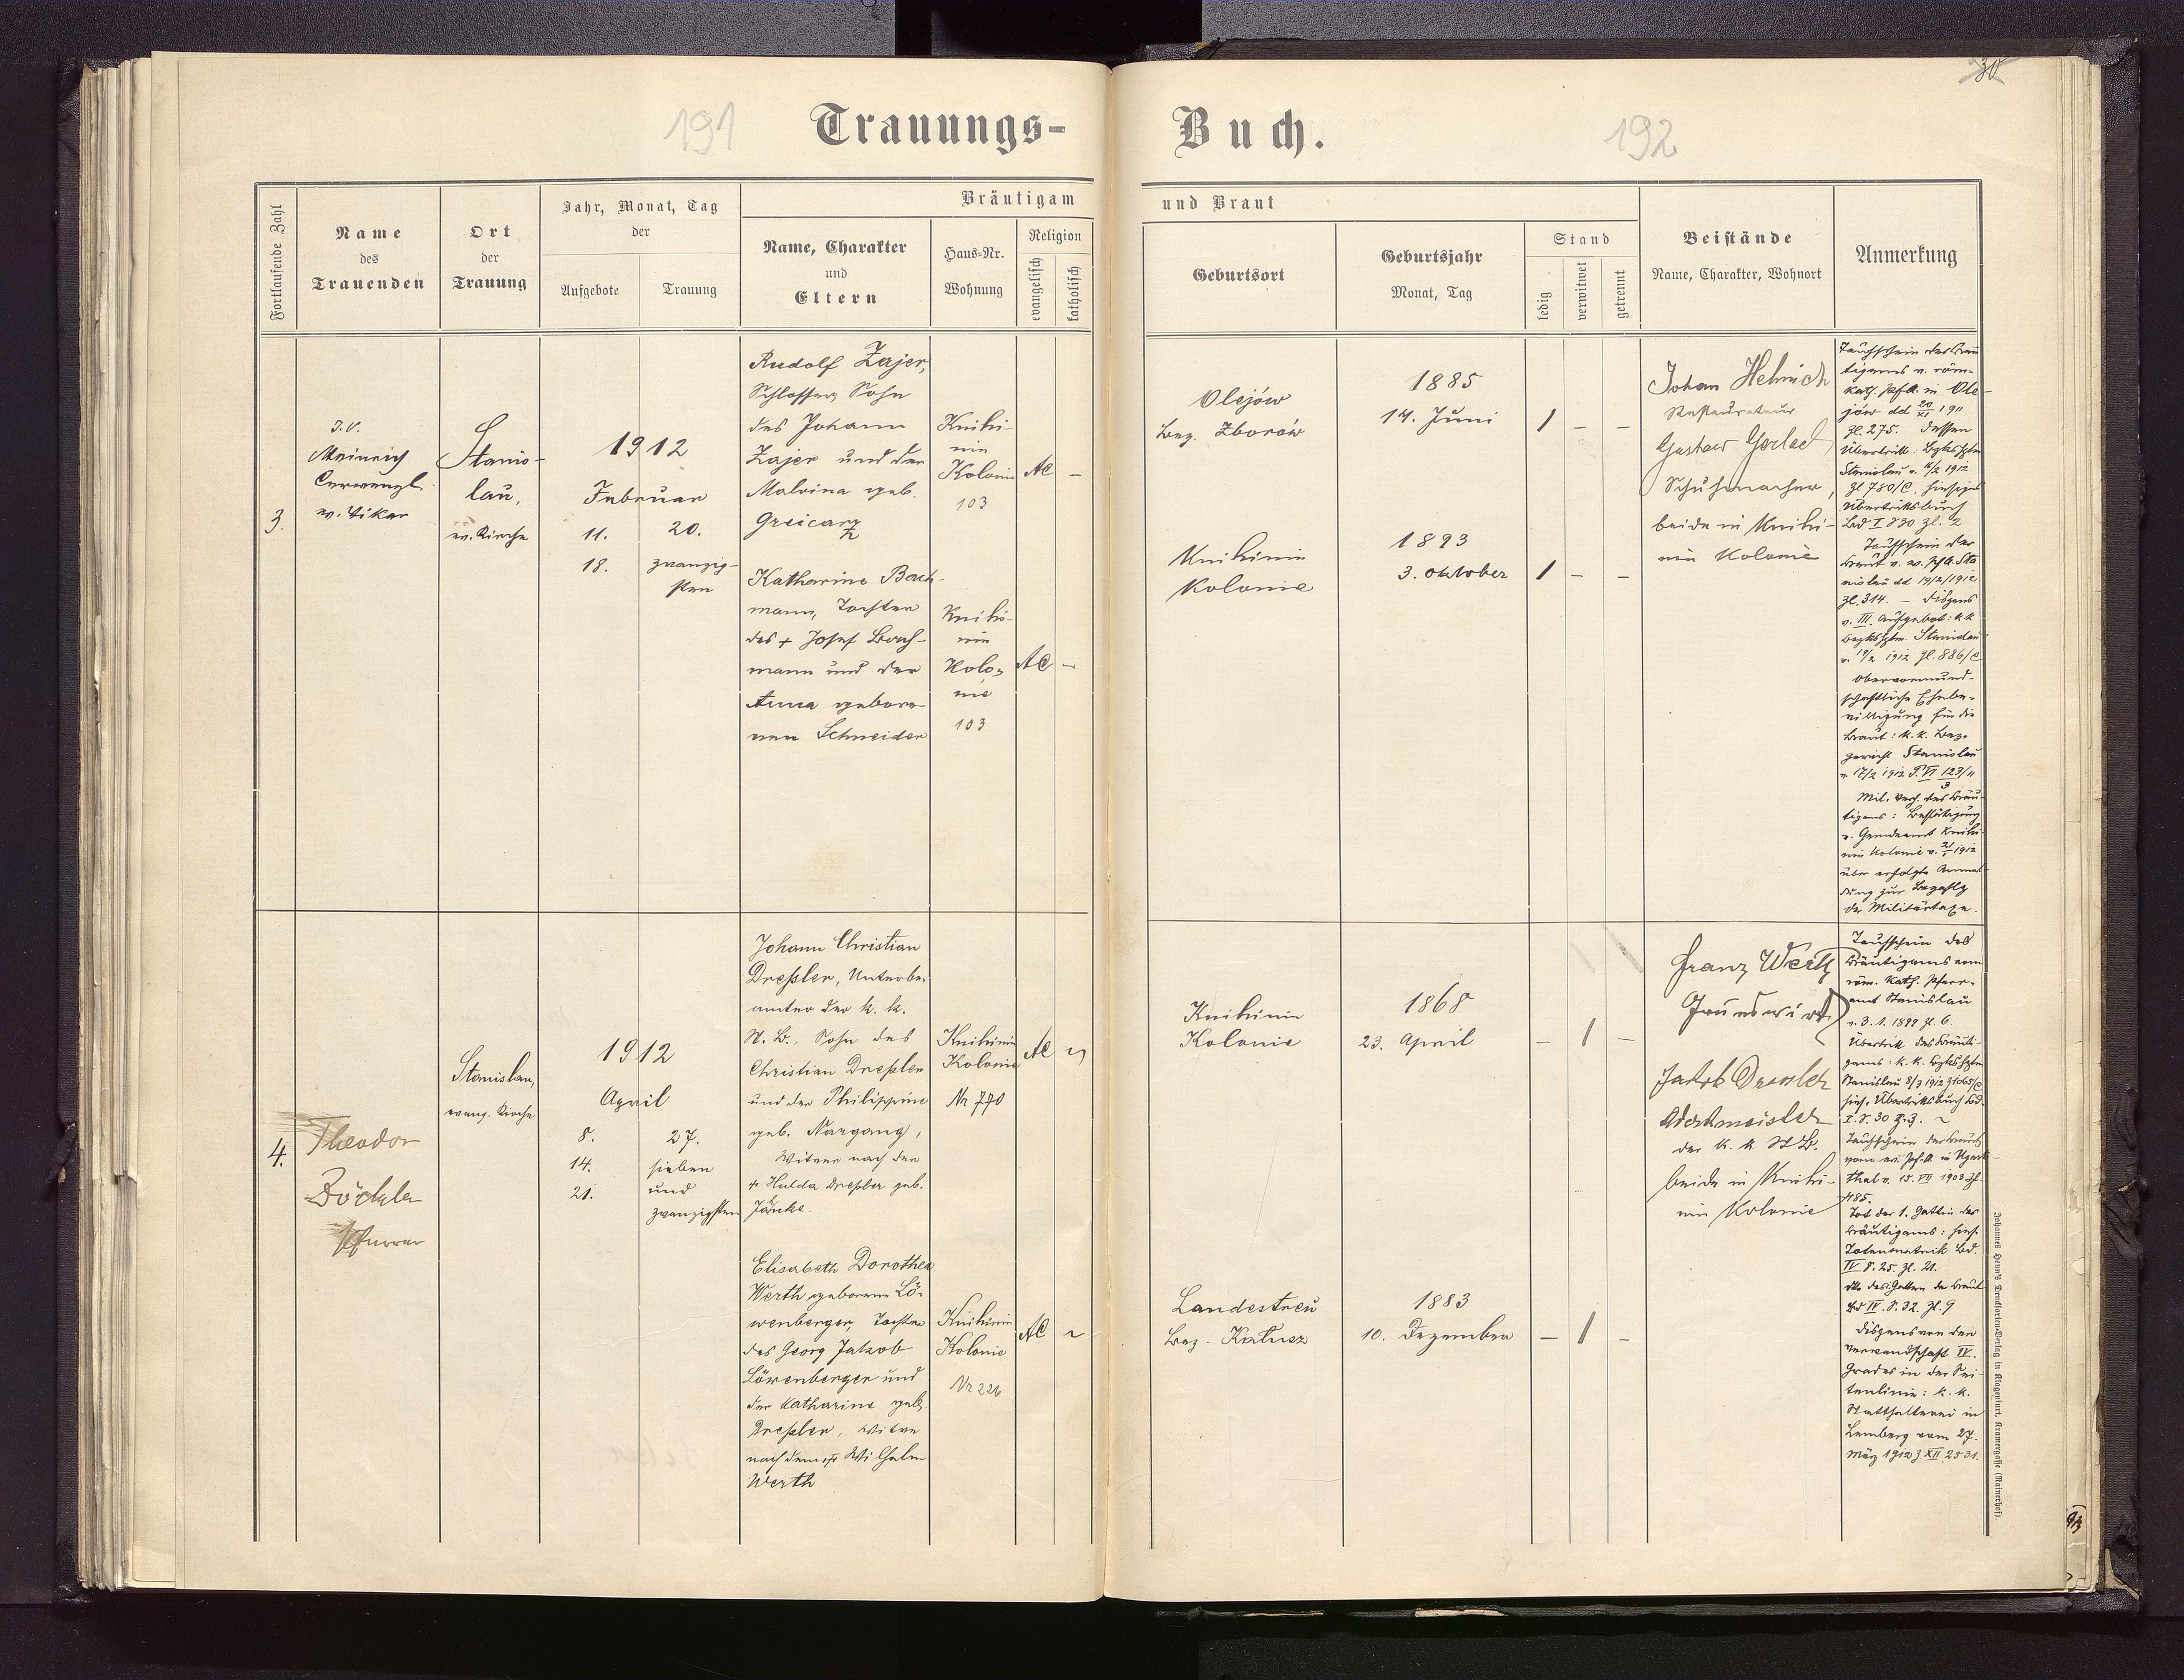 30
191
Trauungs-
Buch.
192
Fortlaufende Zahl
Name
des
Trauenden
Ort
der
Trauung
Jahr, Monat, Tag
der
Aufgebote
Trauung
Bräutigam
Name, Charakter
und
Eltern
Haus-Nr.
Wohnung
Religion
evangelisch
katholisch
und Braut
Geburtsort
Geburtsjahr
Monat, Tag
Stand
ledig
verwitwet
getrennt
Beistände
Name, Charakter, Wohnort
Anmerkung
3.
I.V.
Meinrich
ev. Vikar
Stanis-
lau,
ev. Kirche
1912
Februar
11.
18.
20.
zwanzig-
sten
Rudolf Zajer,
Schlosser, Sohn
des Johann
Zajer und der
Malvina geb.
Greicarz
Knihi-
nin
Kolonie
103
AC –
Katharine Bach-
mann, Tochter
des + Josef Bach-
mann und der
Anna gebore-
nen Schneider
Knihi-
nin
Kolo-
nie
103
AC –
Olejów
Bez. Zborów
1885
14. Juni
1 – –
Knihinin
Kolonie
1893
3. Oktober
1 – –
Johan Helmich
Restaurateur
Gustaw Gerlach
Schuhmacher,
beide in Knihi-
nin Kolonie
Taufschein des Bräu-
tigams v. röm.-
kath. Pf.A. in Ole-
jów dd 20/XI 1911
Zl. 275. Dessen
Übertritt: Bzkshptm
Stanislau v. 16/2 1912
Zl 780/C.
Übertrittsbuch
Bd I S 30 Zl. 2
Taufschein der
Braut v. ev. Pf.A. Sta
nislau dd 19/2/1912
Zl. 314. – Dispens
v. III. Aufgebot: k.k.
Bezkshptm. Stanislau
v. 19/2 1912 Zl. 886/C
Obervormund-
schaftliche Ehebe-
willigung für die
Braut: k. k. Bez.
gericht Stanislau
v. 17/2 1912 P. VI 123/11
3
Mil. Verh. des Bräu-
tigams: Bestätigung
v. Gemdeamt Knihi-
nin Kolonie v. 21/1 1912
über erfolgte Anmel-
dung zur Bezahlg
der Militärtaxe.
4.
Theodor
Zöckler
Pfarrer
Stanislau,
evang. Kirche
1912
April
8.
14.
21.
27.
sieben
und
zwanzigsten
Johann Christian
Dreßler, Unterbe-
amter der k. k.
St. B., Sohn des
Christian Dreßler
und der Philippine
geb. Nargang,
Witwer nach der
+ Hulda Dreßler geb.
Jänke.
Knihinin
Kolonie
Nr 770
AC ~
Elisabeth Dorothea
Werth geborene Lö-
wenberger, Tochter
des Georg Jakob
Löwenberger und
der Katharine geb.
Dreßler, Witwe
nach dem + Wilhelm
Werth
Knihinin
Kolonie
Nr 226
AC ~
Knihinin
Kolonie
1868
23. April
– 1 –
Landestreu
Bez. Kalusz
1883
10. Dezember
– 1 –
Franz Werth
Grundwirt
Jakob Dressler
Werkmeister
der k. k. St B.
beide in Knihi-
nin Kolonie
Taufschein des
Bräutigams vom
röm. kath. Pfarr-
amt Stanislau
v. 3. 1. 1899 Zl. 6.
Übertritt des Bräuti-
gams: k. k. Bzkshptm
Stanislau 8/3 1912 Z 1065/C
hies. Übertrittsbuch Bd.
I. S. 30 Z. 3. ~
Taufschein der Braut
vom ev. Pf.A. in Ugart-
thal v. 15. VII 1903 Zl.
485.
Tod der 1. Gattin des
Bräutigams: hies.
Totenmatrik Bd.
IV S. 25. Zl. 21.
dto des Gatten der Braut
Bd IV. S. 32. Zl. 9
Dispens von der
Verwandschaft IV.
Grades in der Sei-
tenlinie: k. k.
Statthalterei in
Lemberg vom 27.
März 1912 Z. XII 2531.
Johannes Heyn's Drucksorten-Verlag in Klagenfurt, Kramergasse (Rainerhof).